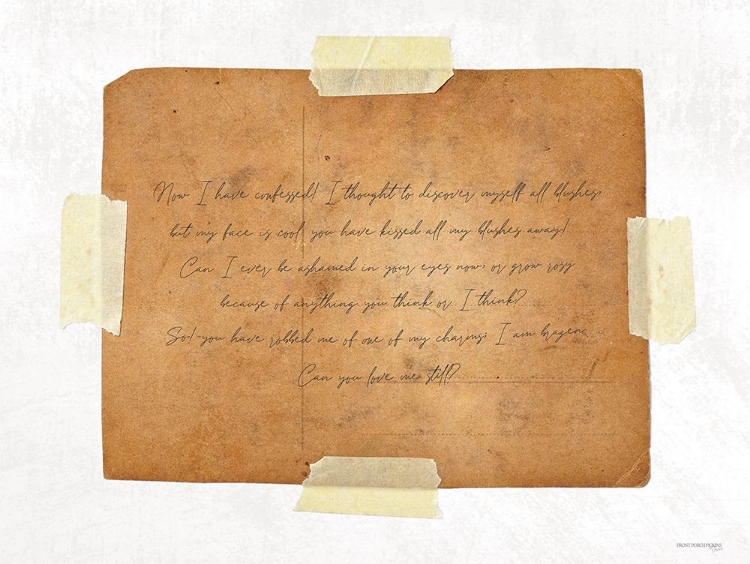 Now I have confessed! I thought to discover myself all blushes,
but my face is cool you have kissed all my blushes away!
Can I ever be ashamed in your eyes now, or grow rosy
because of anything you think or I think?
So!-you have robbed me of one of my charms: I am brazen.
Can you love me still?
FRONT PORCH PICKINS